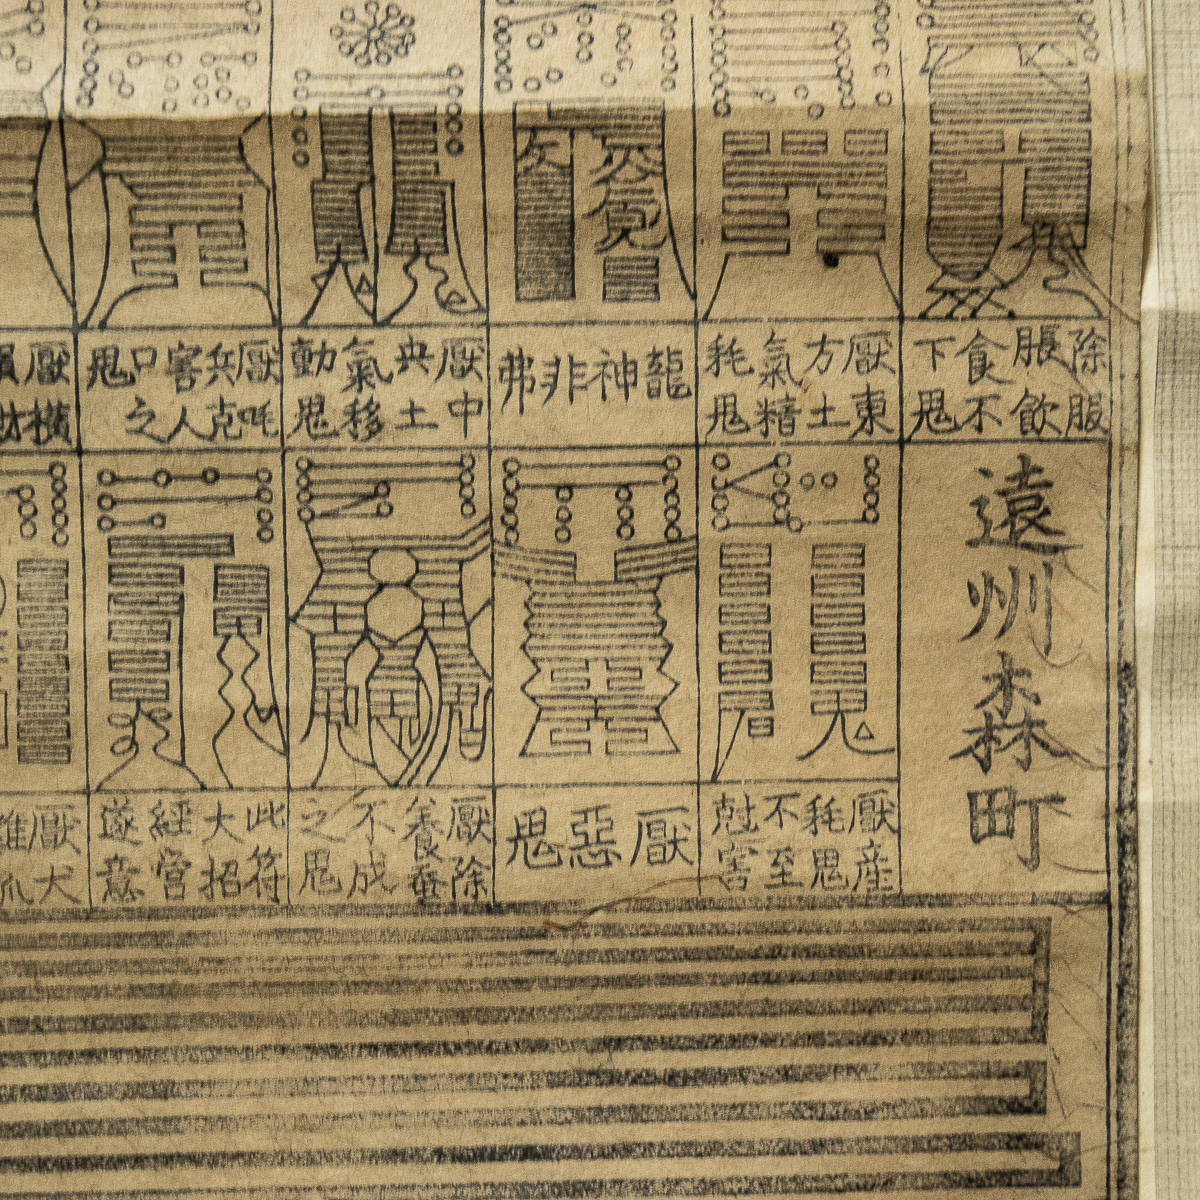 除服
脹飲
食不
下鬼
厭東
方土
氣精
耗鬼
龍神非弗
厭中
央土
氣移
動鬼
厭吒
兵克
害人
口之
鬼
厭橫
遠州森町
厭産
耗鬼
不至
尅害
厭惡鬼
厭除
養蚕
不成
之鬼
此符
大招
經營
遂意
厭犬